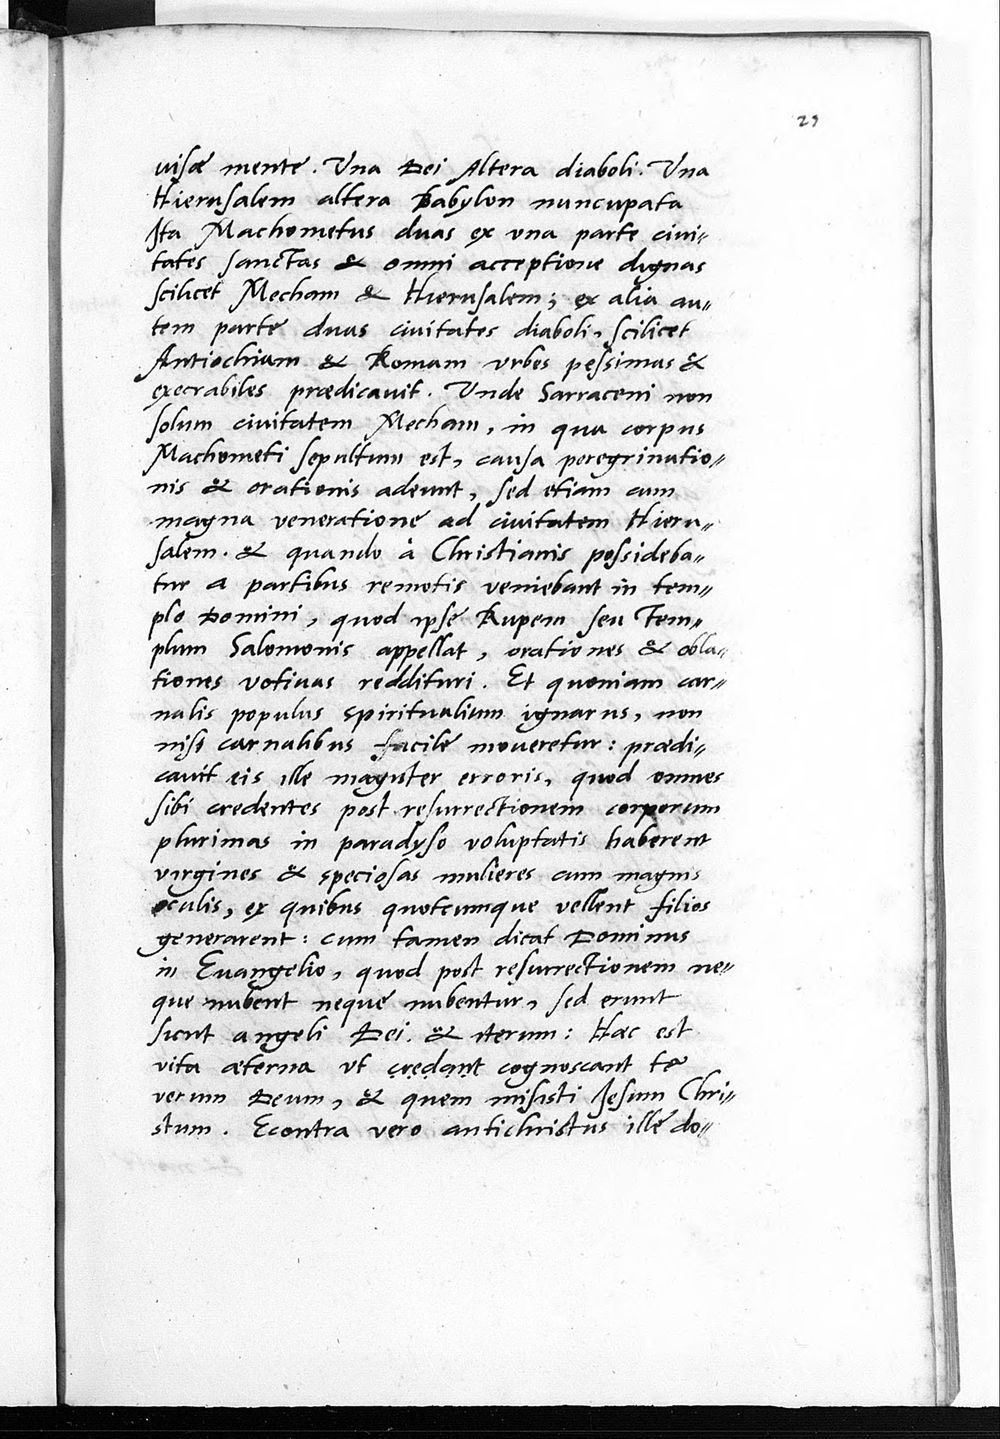 29
uisæ mente. Una Dei Altera diaboli. Una
Hierusalem altera Babylon nuncupata
Ita Machometus duas ex vna parte ciui„
tates sanctas & omni acceptione dignas
scilicet Mecham & Hierusalem; ex alia au„
tem parte duas ciuitates diaboli, scilicet
Antiochiam & Romam vrbes pessimas &
execrabiles prædicauit. Unde Sarraceni non
solum ciuitatem Mecham, in qua corpus
Machometi sepultum est, causa peregrinatio„
nis & orationis adeunt, sed etiam cum
magna veneratione ad ciuitatem Hieru„
salem. & quando à Christianis possideba„
tur a partibus remotis veniebant in tem„
plo Domini, quod ipse Rupem seu Tem„
plum Salomonis appellat, orationes & obla„
tiones votiuas reddituri. Et quoniam car„
nalis populus spiritualium ignarus, non
nisi carnalibus facile moueretur: prædi„
cauit eis ille magister erroris, quod omnes
sibi credentes post resurrectionem corporum
plurimas in paradyso voluptatis haberent
virgines & speciosas mulieres cum magnis
oculis, ex quibus quotcumque vellent filios
generarent: cum tamen dicat Dominus
in Euangelio, quod post resurrectionem ne„
que nubent neque nubentur, sed erunt
sicut angeli Dei. & iterum: Hæc est
vita æterna vt credant cognoscant te
verum Deum, & quem misisti Jesum Chri„
stum. Econtra vero antichristus ille do„